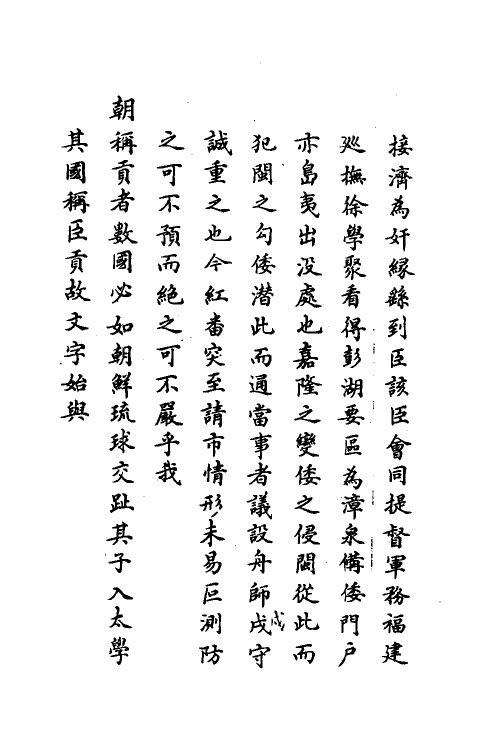 接濟為奸縁繇到臣該臣會同提督軍務福建
廵撫徐學聚看得彭湖要區為漳泉備倭門戶
亦島夷出没處也嘉隆之變倭之侵閩從此而
犯閩之勾倭潜此而通當事者議設舟師戍守
誠重之也今紅畨突至請市情形未易叵測防
之可不預而絶之可不嚴乎我
朝稱貢者數國必如朝鮮琉球交趾其子入太學
其國稱臣貢故文字始與